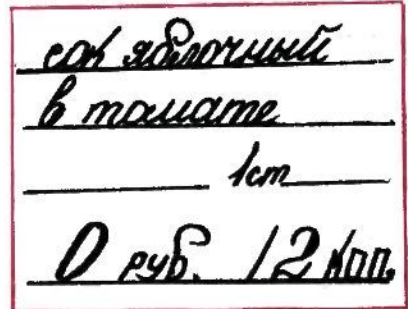 сок яблочный
в томате
1ст
0 руб. 12 коп.